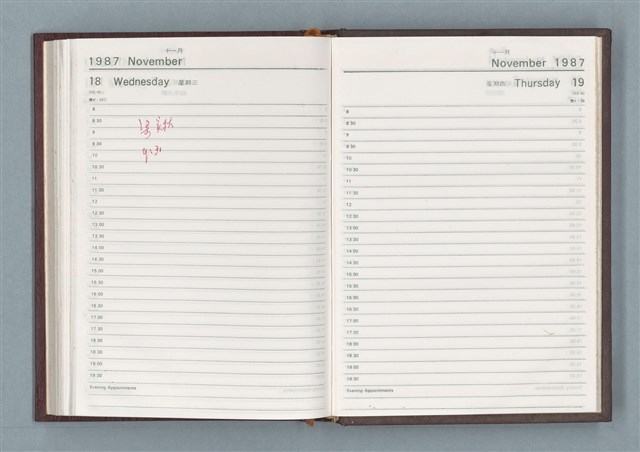 十一月
1987 November
18 Wednesday 星期三
8
8 30
9
9 30
10
10 30
11
11 30
12
12 30
13 00
13 30
14 00
14 30
15 00
15 30
16 00
16 30
17 00
17 30
18 00
18 30
19 00
19 30
Evening Appointments
9:30
十一月
November 1987
星期四 Thursday 19
8
8 30
9
9 30
10
10 30
11
11 30
12
12 30
13 00
13 30
14 00
14 30
15 00
15 30
16 00
16 30
17 00
17 30
18 00
18 30
19 00
19 30
Evening Appointments